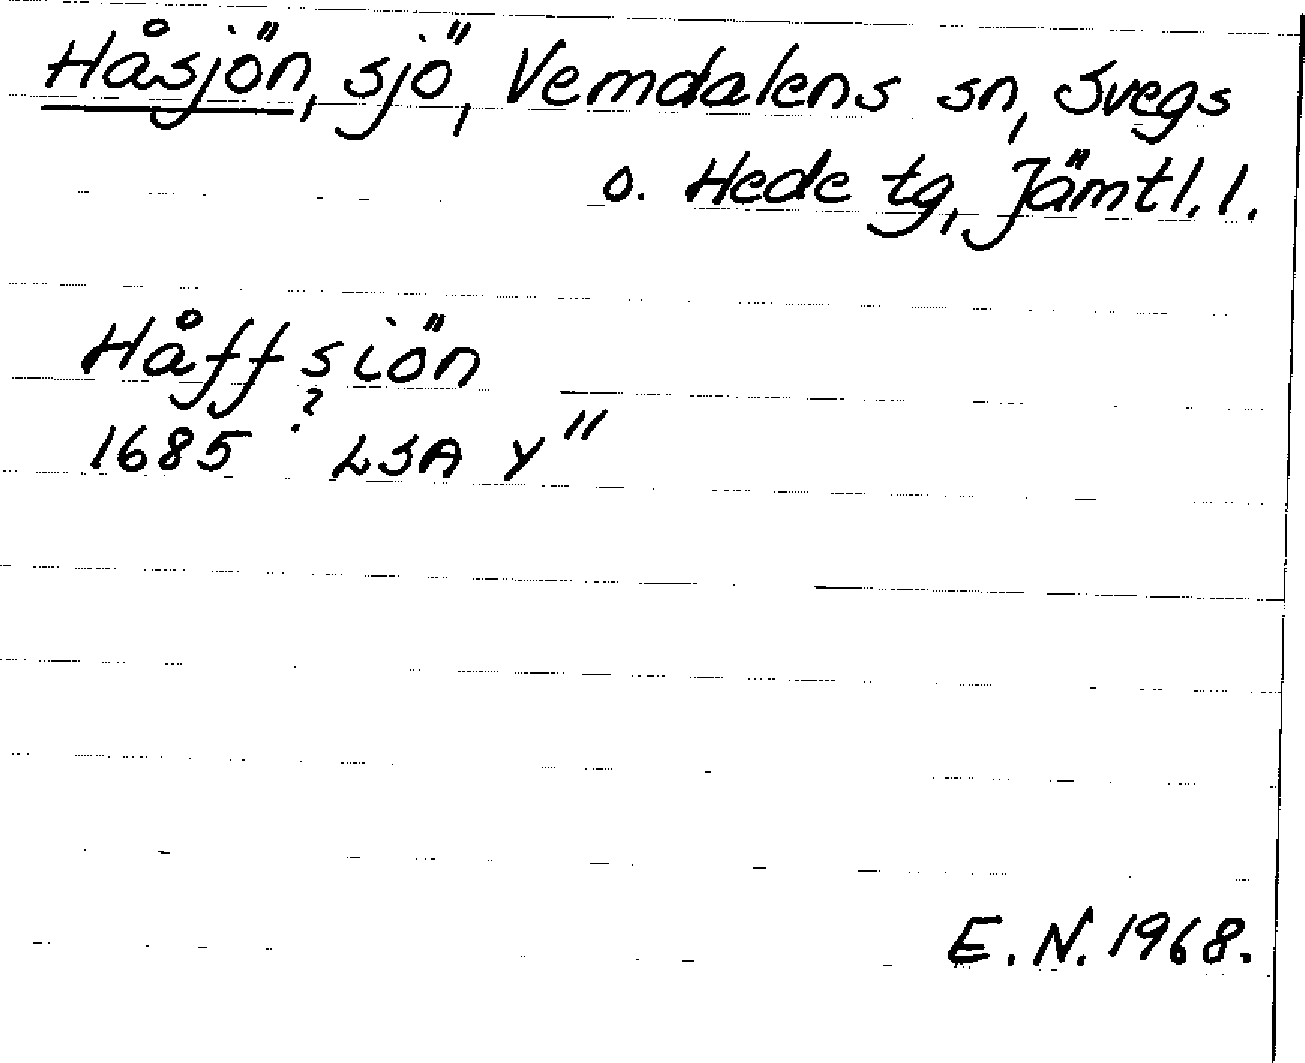 Håsjön, sjö, Vemdalens sn, Svegs
o. Hede tg, Jämtl. l.
Håffsiön
?
1685 LSA Y"
E. N. 1968.